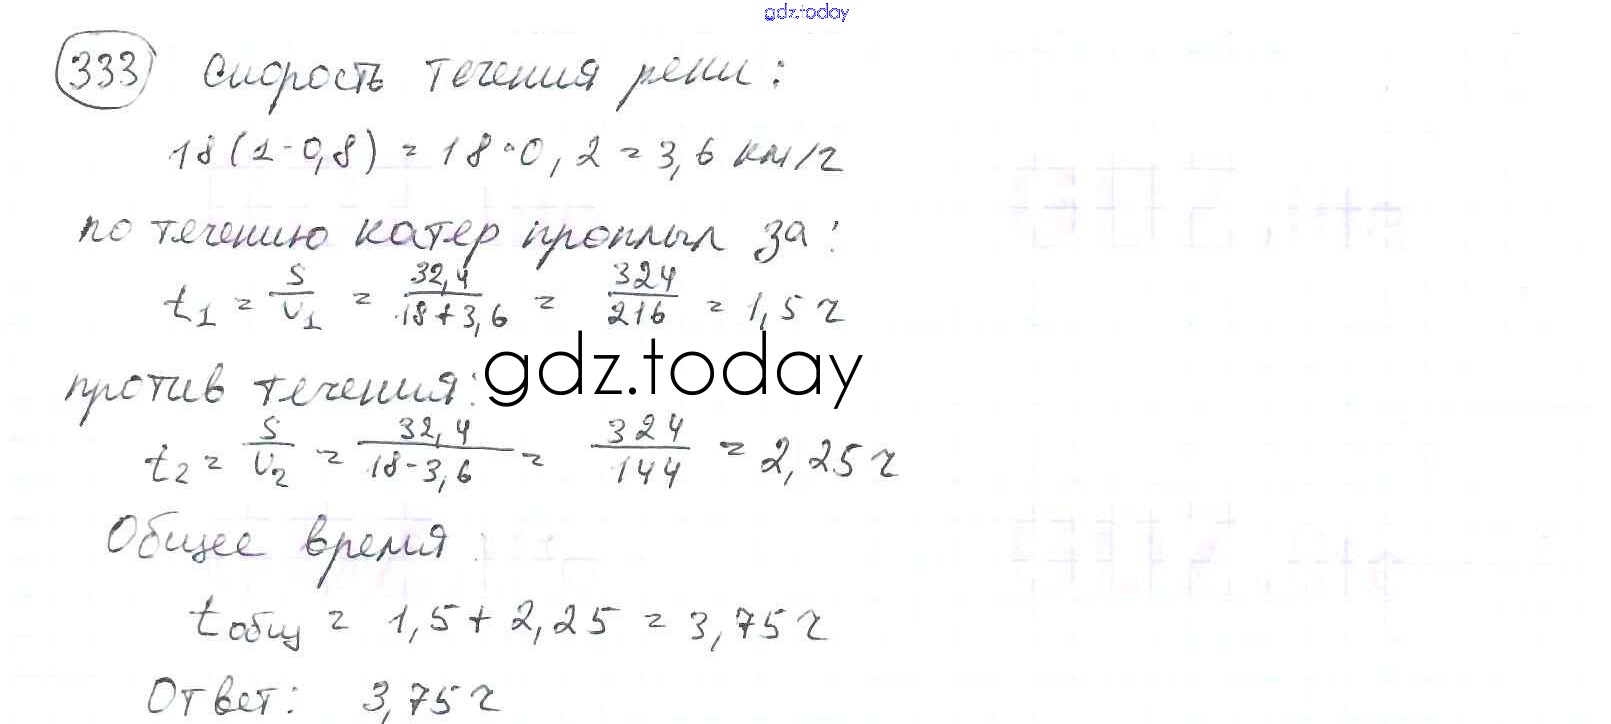 gdz.today
333 Скорость течения реки:
18(1-0,8) = 18·0,2 = 3,6 км/ч
по течению катер проплыл за:
t₁ = S/v₁ = 32,4/18+3,6 = 324/216 = 1,5 ч
gdz.today
против течения:
t₂ = S/v₂ = 32,4/18-3,6 = 324/144 = 2,25 ч
Общее время:
tобщ = 1,5 + 2,25 = 3,75 ч
Ответ: 3,75 ч